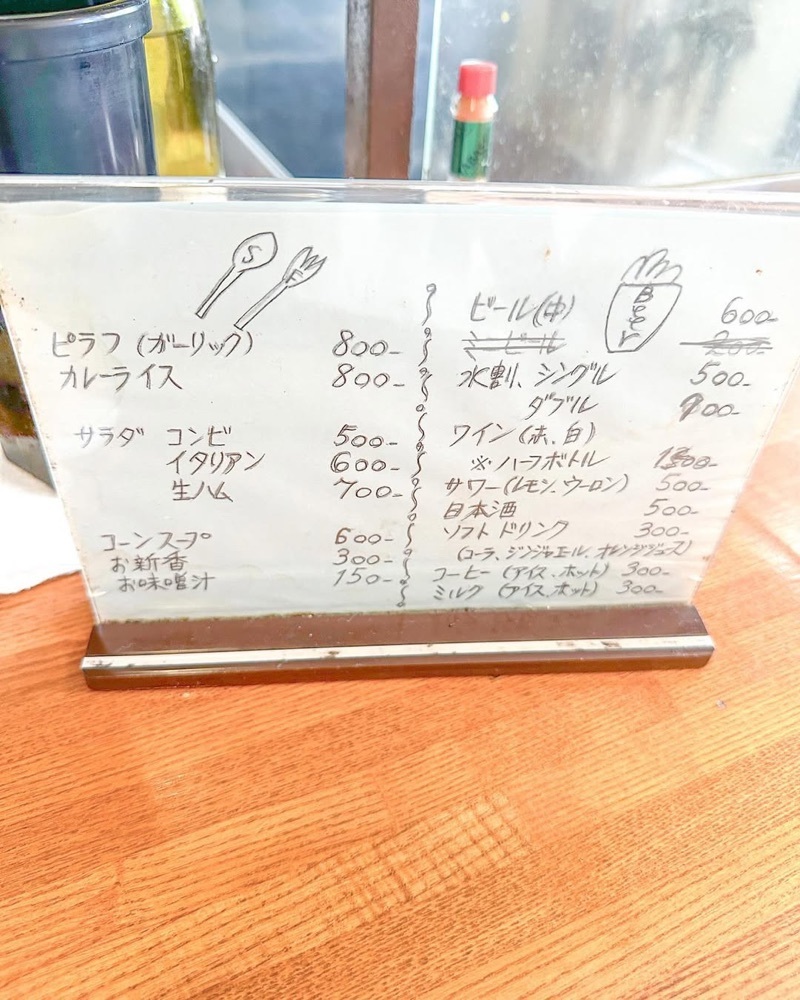 S
F
ピラフ (ガーリック) 800-
カレーライス 800-
サラダ コンビ 500-
イタリアン 600-
生ハム 700-
コーンスープ 600-
お新香 300-
お味噌汁 150-
Beer
ビール(中) 600-
水割、シングル 500-
ダブル 900-
ワイン (赤、白)
※ハーフボトル
サワー(レモン、ウーロン) 500-
日本酒 500-
ソフトドリンク 300-
(コーラ、ジンジャエール、オレンジジュース)
コーヒー (アイス、ホット) 300-
ミルク (アイス、ホット) 300-